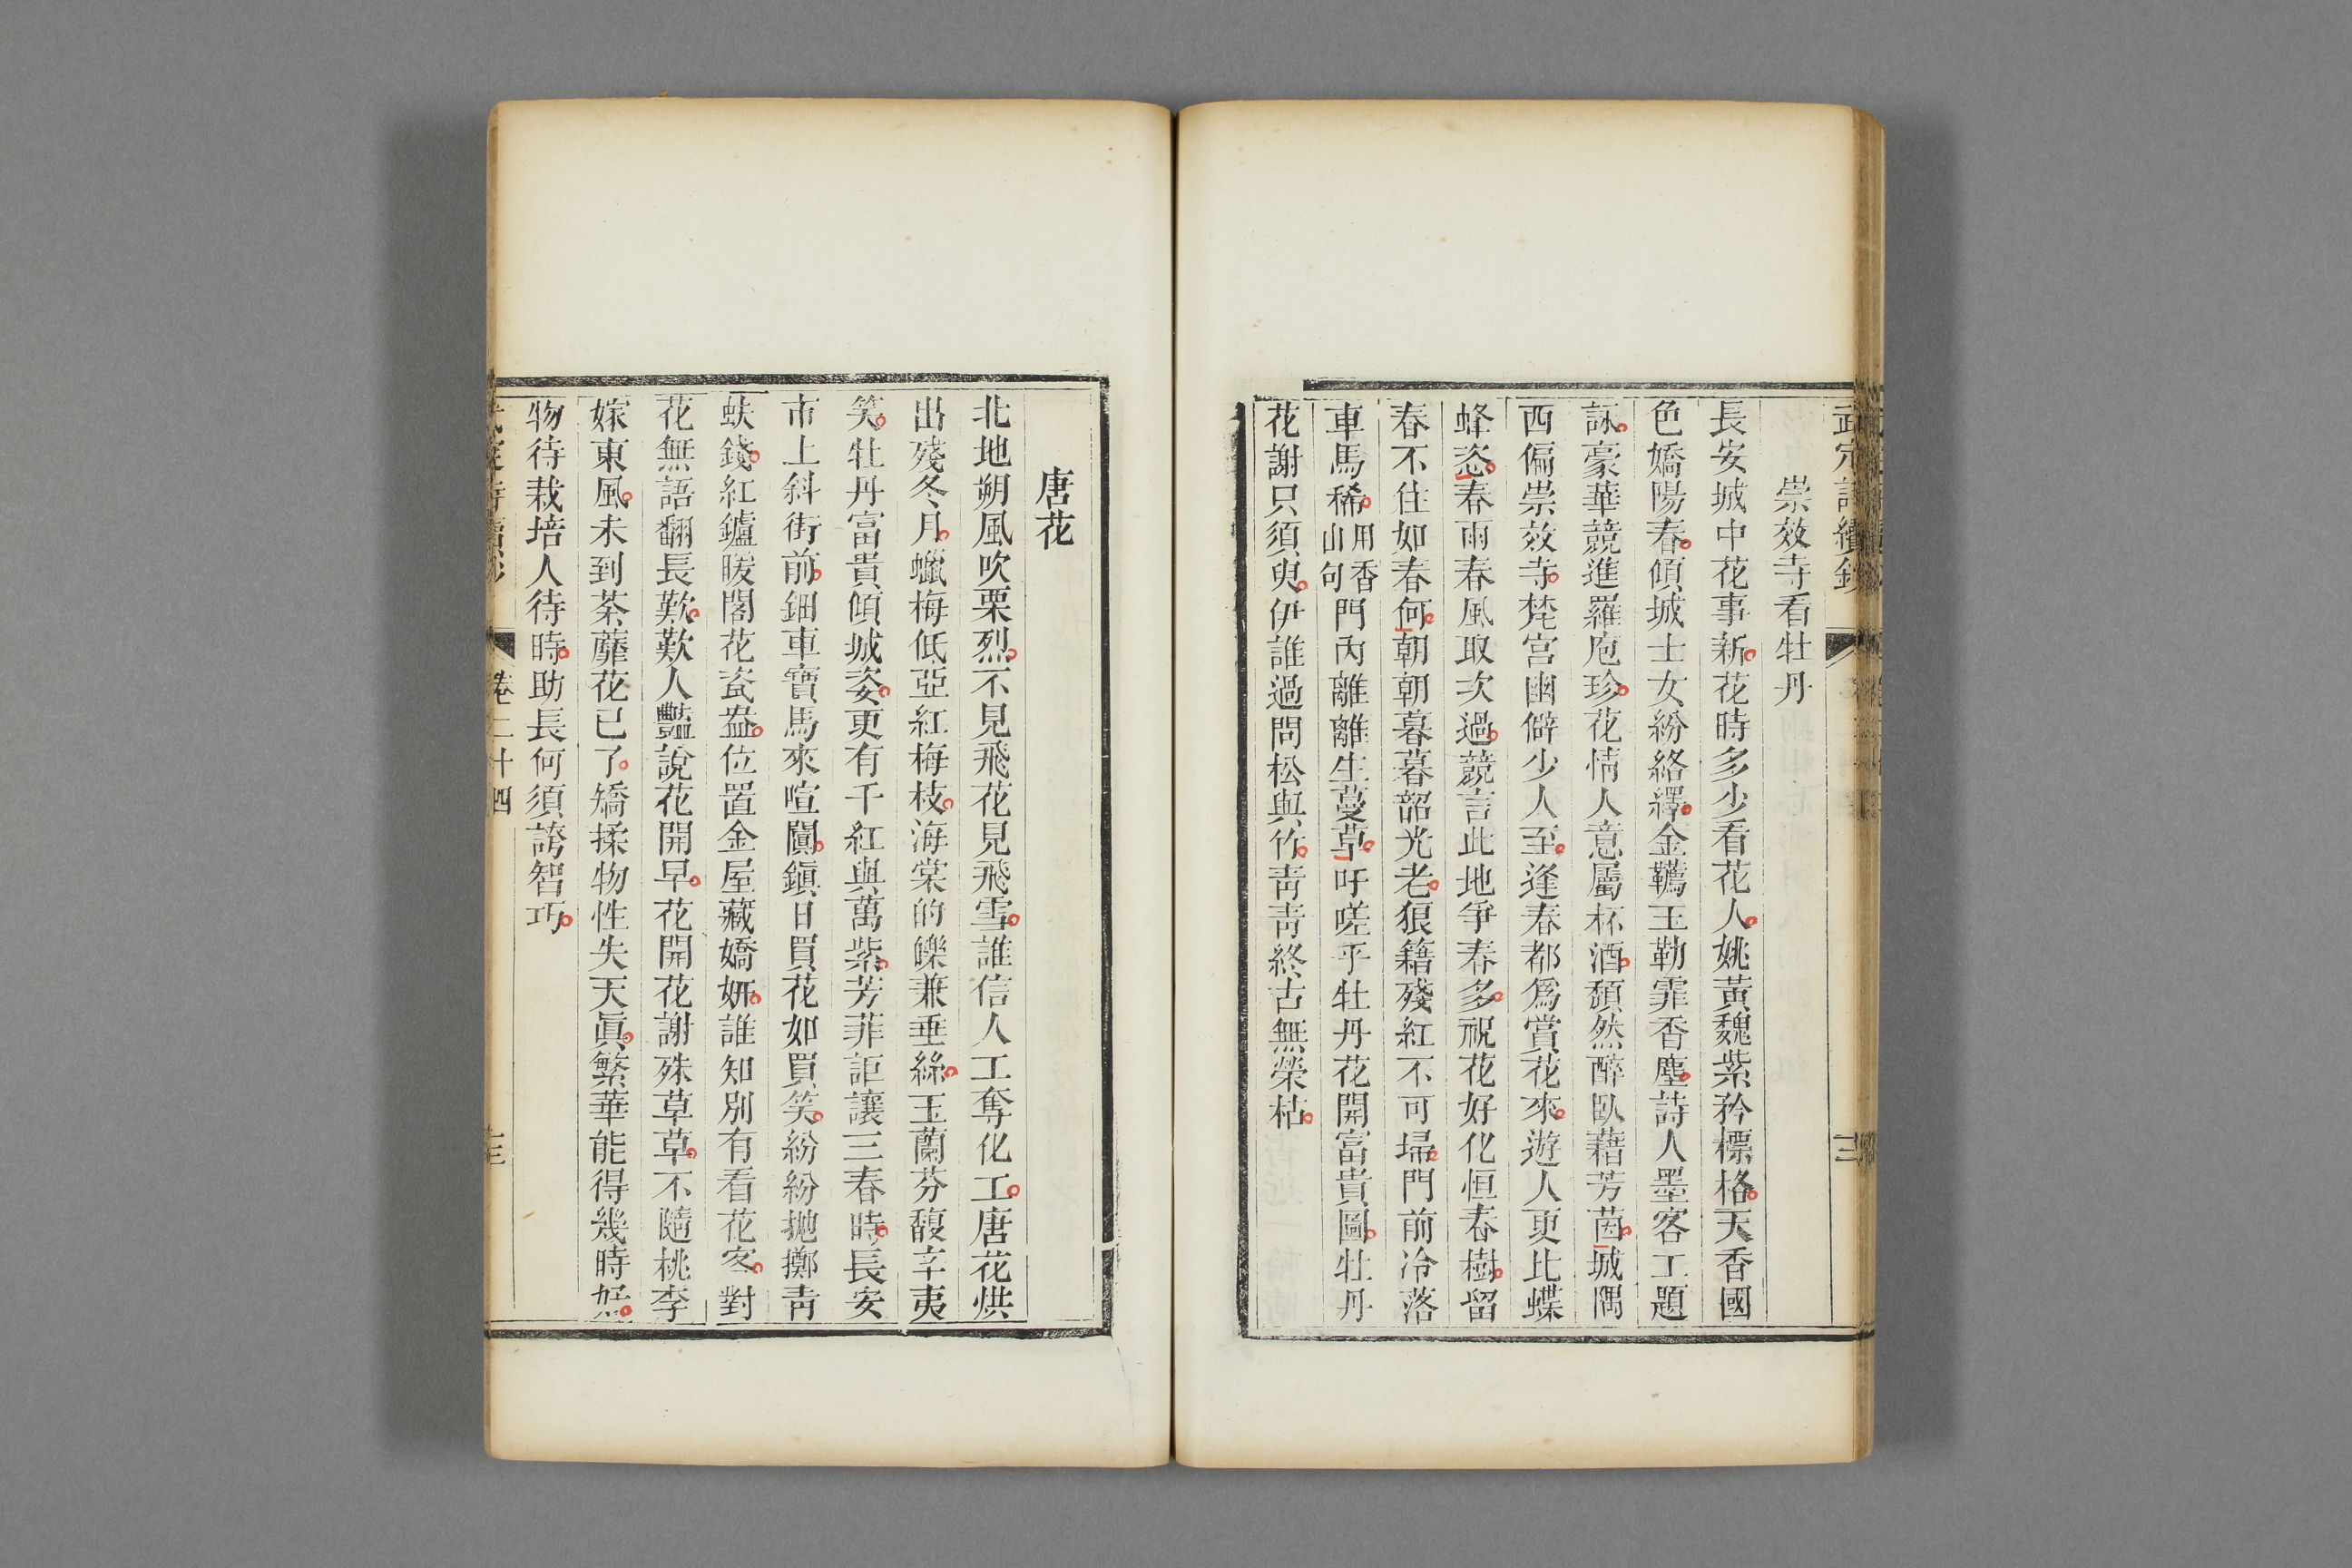 武定詩續鈔
三
崇效寺看牡丹
長安城中花事新花時多少看花人姚黃魏紫矜標格天香國
色嬌陽春傾城士女紛絡繹金韉玉勒霏香塵詩人墨客工題
詠豪華競進羅庖珍花情人意屬杯酒頹然醉臥藉芳茵城隅
西偏崇效寺梵宮幽僻少人至逢春都爲賞花來遊人更比蝶
蜂恣春雨春風取次過競言此地爭春多祝花好化恒春樹留
春不住如春何朝朝暮暮韶光老狼籍殘紅不可埽門前冷落
車馬稀用香山句門內離離生蔓草吁嗟乎牡丹花開富貴圖牡丹
花謝只須臾伊誰過問松與竹靑靑終古無榮枯
唐花
北地朔風吹栗烈不見飛花見飛雪誰信人工奪化工唐花烘
出殘冬月蠟梅低亞紅梅枝海棠的皪兼垂絲玉蘭芬馥辛夷
笑牡丹富貴傾城姿更有千紅與萬紫芳菲詎讓三春時長安
市上斜街前鈿車寶馬來喧闐鎭日買花如買笑紛紛拋擲靑
蚨錢紅鑪暖閣花瓷盎位置金屋藏嬌姸誰知別有看花客對
花無語翻長歎歎人豔說花開早花開花謝殊草草不隨桃李
嫁東風未到荼蘼花已了矯揉物性失天眞繁華能得幾時好
物待栽培人待時助長何須誇智巧
卷二十四
三